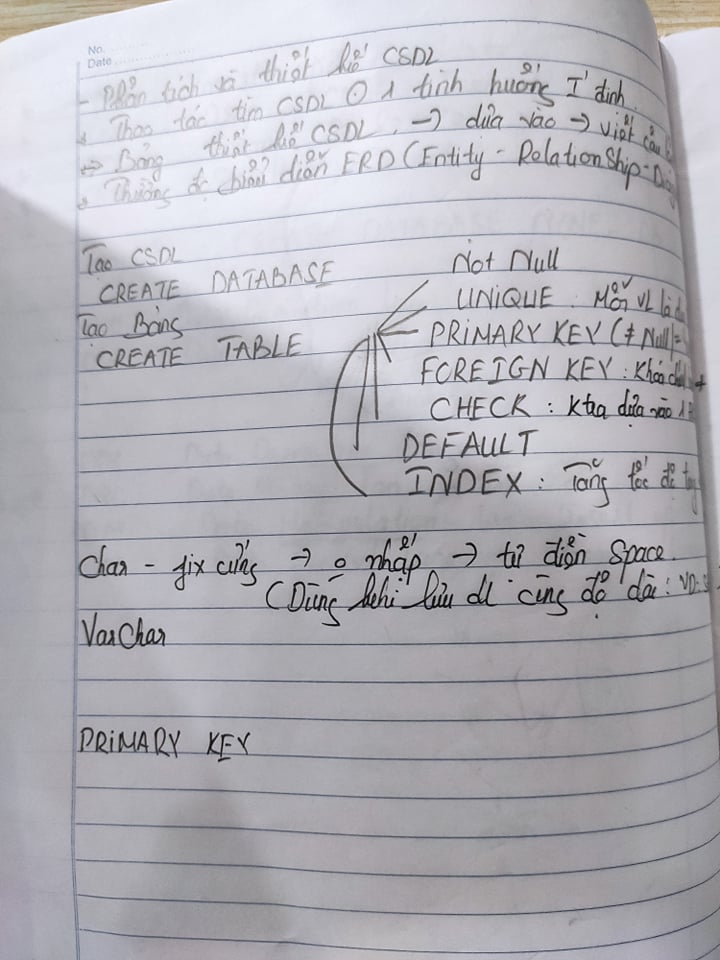 No.
Date
- Phân tích và thiết kế CSDL
Thao tác tìm CSDL 1 tình huống I' định
Bảng thiết kế CSDL → dựa vào → viết câu
Thường đc biểu diễn ERD (Entity - RelationShip -
Tạo CSDL
CREATE DATABASE
Tạo Bảng
CREATE TABLE
Not Null
UNIQUE : Mỗi VL là
PRIMARY KEY (≠ Null) =
FOREIGN KEY : Khoá
CHECK : Ktra dựa vào 1
DEFAULT
INDEX : Tăng tốc độ
Char - fix cứng → o nhập → tự điền Space.
(Dùng khi lưu dl cùng độ dài : VD:
VarChar
PRIMARY KEY